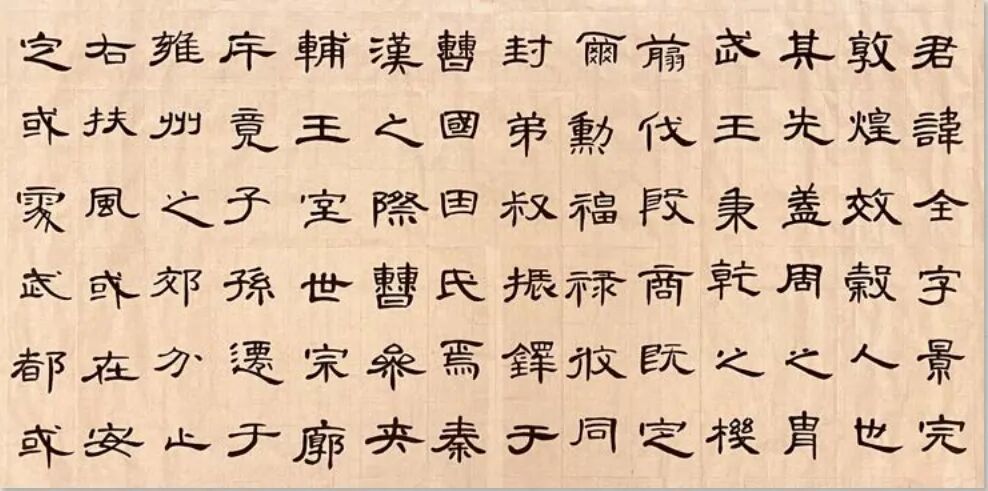 君諱全字景完
敦煌效穀人也
其先蓋周之胄
武王秉乾之機
翦伐殷商既定
爾勳福祿攸同
封弟叔振鐸于
曹國因氏焉秦
漢之際曹參夾
輔王室世宗廓
斥竟子孫遷于
雍州之郊分止
右扶風或在安
定或處武都或